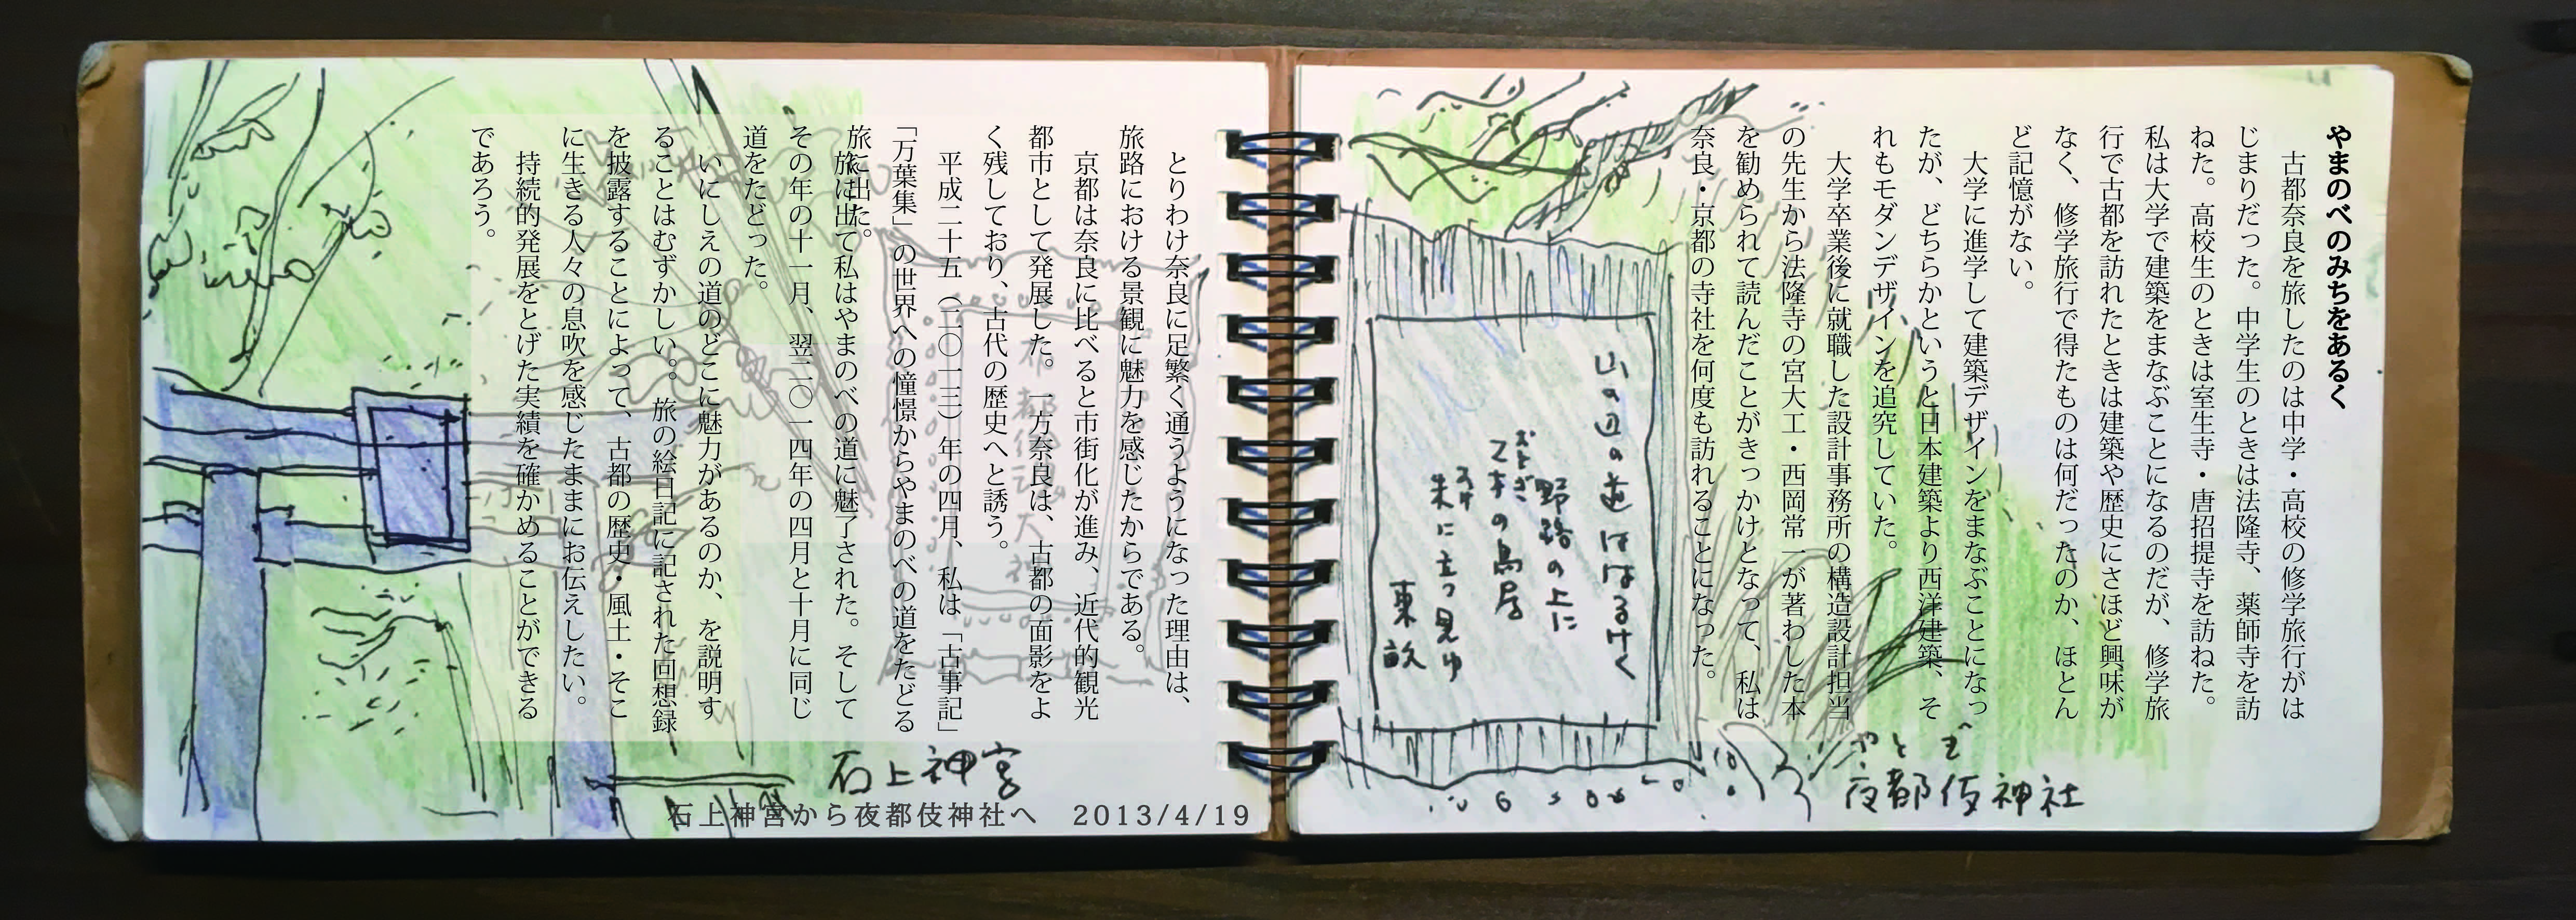 やまのべのみちをあるく
古都奈良を旅したのは中学・高校の修学旅行がは
じまりだった。中学生のときは法隆寺、薬師寺を訪
ねた。高校生のときは室生寺・唐招提寺を訪ねた。
私は大学で建築をまなぶことになるのだが、修学旅
行で古都を訪れたときは建築や歴史にさほど興味が
なく、修学旅行で得たものは何だったのか、ほとん
ど記憶がない。
大学に進学して建築デザインをまなぶことになっ
たが、どちらかというと日本建築より西洋建築、そ
れもモダンデザインを追究していた。
大学卒業後に就職した設計事務所の構造設計担当
の先生から法隆寺の宮大工・西岡常一が著わした本
を勧められて読んだことがきっかけとなって、私は
奈良・京都の寺社を何度も訪れることになった。
山の辺の道ははるけく
野路の上に
乙木の鳥居
おとぎ
朱に立つ見ゆ
東畝
やとぎ
夜都伎神社
とりわけ奈良に足繁く通うようになった理由は、
旅路における景観に魅力を感じたからである。
京都は奈良に比べると市街化が進み、近代的観光
都市として発展した。一方奈良は、古都の面影をよ
く残しており、古代の歴史へと誘う。
平成二十五（二〇一三）年の四月、私は「古事記」
「万葉集」の世界への憧憬からやまのべの道をたどる
旅に出た。
旅に出て私はやまのべの道に魅了された。そして
その年の十一月、翌二〇一四年の四月と十月に同じ
道をたどった。
いにしえの道のどこに魅力があるのか、を説明す
ることはむずかしい。。旅の絵日記に記された回想録
を披露することによって、古都の歴史・風土・そこ
に生きる人々の息吹を感じたままにお伝えしたい。
持続的発展をとげた実績を確かめることができる
であろう。
石上神宮
石上神宮から夜都伎神社へ　2013/4/19